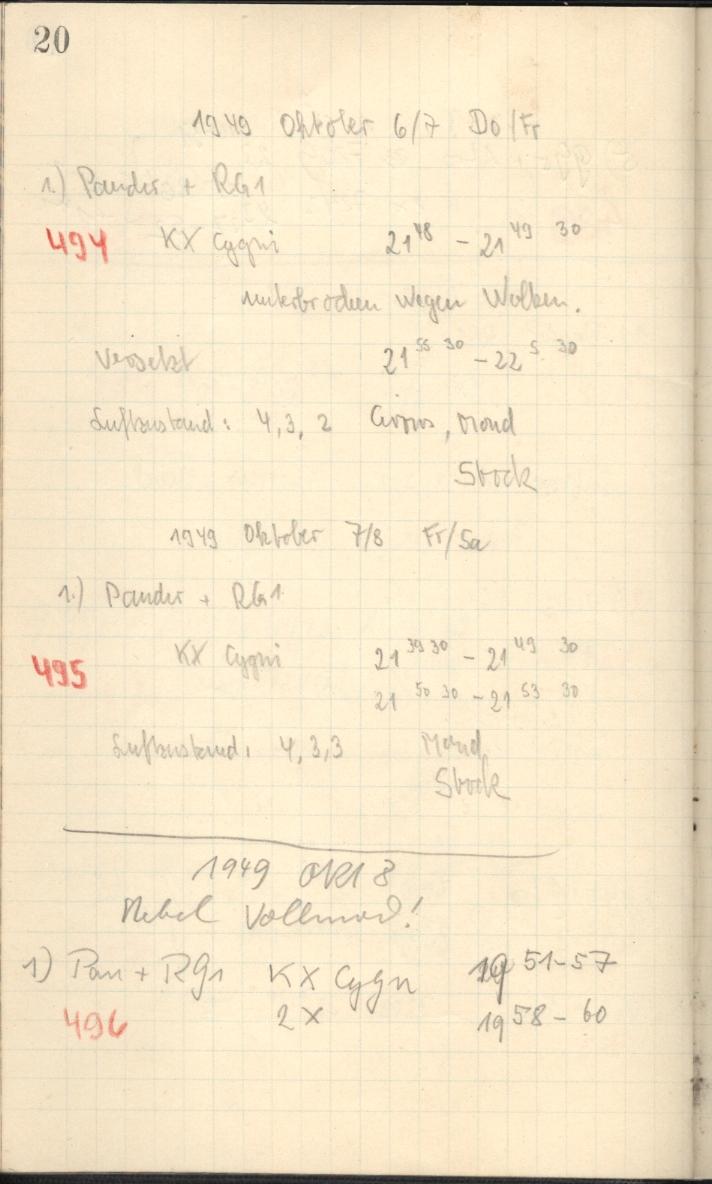 20
1949 Oktober 6/7 Do/Fr
1.) Pander + RG1
494 KX Cygni 21 48 - 21 49 30
unterbrochen wegen Wolken.
Versetzt 21 55 30 - 22 5 30
Luftzustand: 4, 3, 2 Cirrus, Mond
Stock
1949 Oktober 7/8 Fr/Sa
1.) Pander + RG1
495 KX Cygni 21 39 30 - 21 49 30
21 50 30 - 21 53 30
Luftzustand: 4, 3, 3 Mond
Stock
1949 Okt 8
Nebel Vollmond!
1) Pan + RG1 KX Cygn 19 51-57
496 2X 19 58 - 60